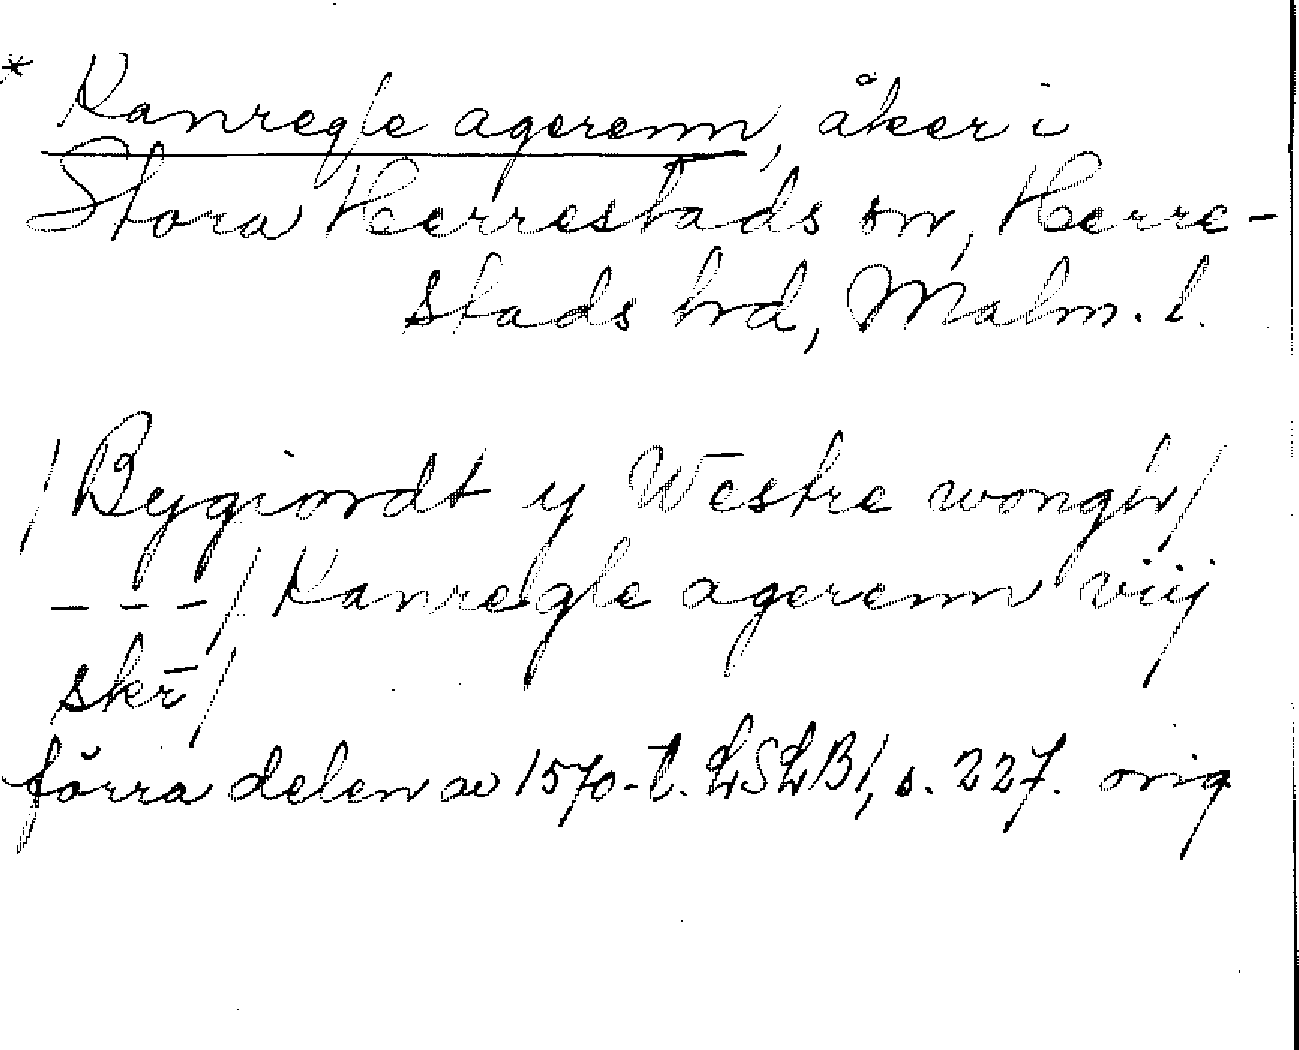 * Kanregle agerenn, åker i
Stora Herrestads sn, Herre-
stads hrd, Malm. l.
/Bygiordt y Westre wongh/
---/Kanregle agerenn viij
skr̄/
förra delen av 1570-t. LSLB1, s. 227. orig